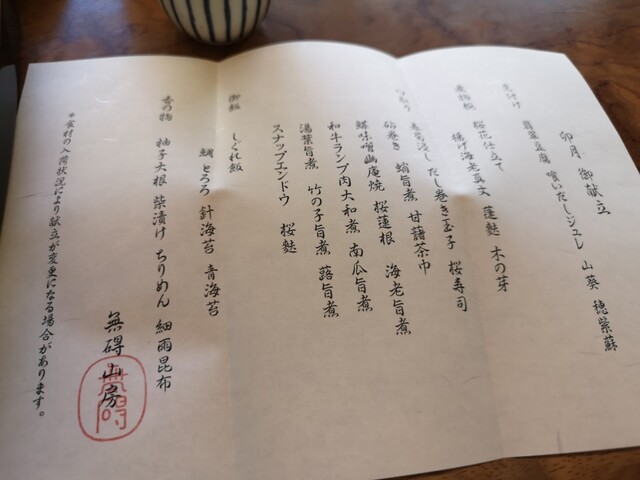 卯月 御献立
先付け
翡翠豆腐 喰いだしジュレ 山葵 穂紫蘇
煮物椀
桜花仕立て
揚げ海老真丈 蓬麩 木の芽
だし巻き玉子 桜寿司
砂巻き 蛸旨煮 甘藷茶巾
鰆味噌幽庵焼 桜蓮根 海老旨煮
和牛ランプ肉大和煮 南瓜旨煮
湯葉旨煮 竹の子旨煮 蕗旨煮
スナップエンドウ 桜麩
御飯
しぐれ飯
鯛とろろ 針海苔 青海苔
香の物 柚子大根 柴漬け ちりめん 細雨昆布
無碍山房
*食材の入荷状況により献立が変更になる場合があります。